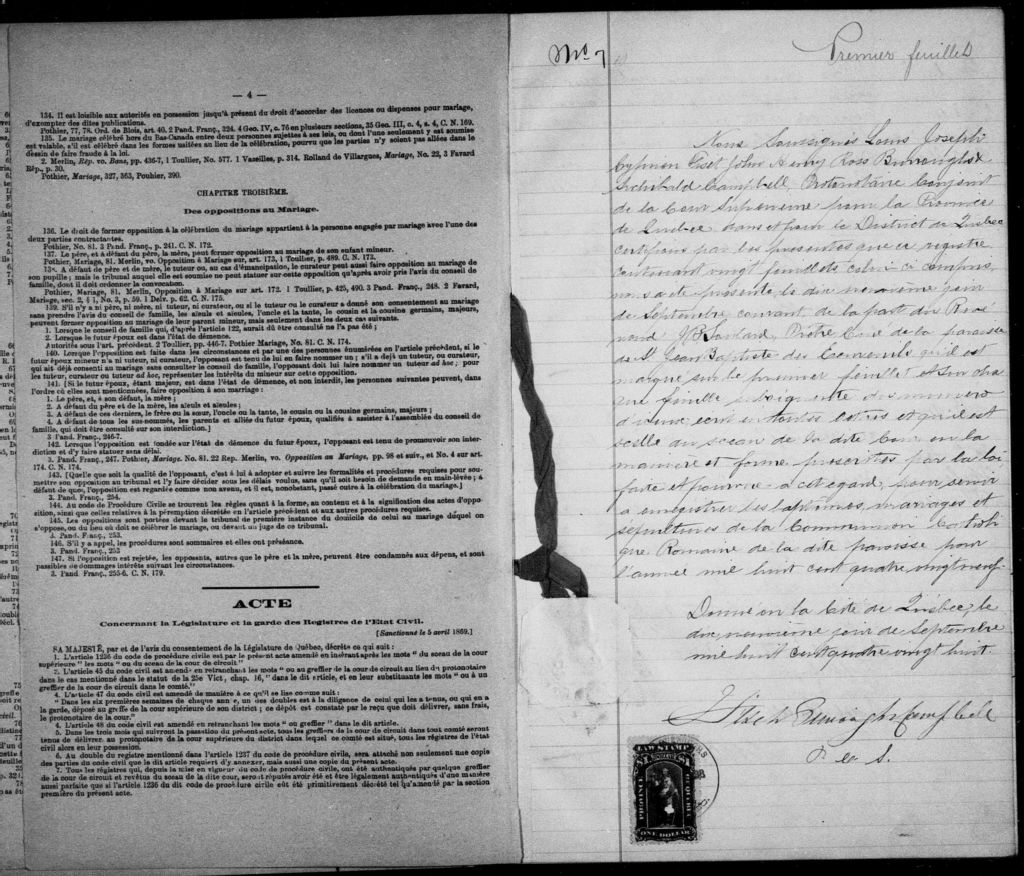 — 4 —
134. Il est loisible aux autorités en possession jusqu'à présent du droit d'accorder des licences ou dispenses pour mariage,
d'exempter des dites publications.
Pothier, 77, 78. Ord. de Blois, art. 40. 2 Pand. Franç., 324. 4 Geo. IV, c. 76 en plusieurs sections, 35 Geo. III, c. 4, s. 4, C. N. 169.
135. Le mariage célébré hors du Bas-Canada entre deux personnes sujettes à ses lois, ou dont l'une seulement y est soumise
est valable, s'il est célébré dans les formes usitées au lieu de la célébration, pourvu que les parties n'y soient pas allées dans le
dessin de faire fraude à la loi.
2. Merlin, Rép. vo. Bans, pp. 436-7, 1 Toullier, No. 577. 1 Vazeilles, p. 314. Rolland de Villargues, Mariage, No. 22, 3 Favard
Rép., p. 30.
Pothier, Mariage, 327, 363, Pouhier, 390.
CHAPITRE TROISIÈME.
Des oppositions au Mariage.
136. Le droit de former opposition à la célébration du mariage appartient à la personne engagée par mariage avec l'une des
deux parties contractantes.
Pothier, No. 81. 3 Pand. Franç., p. 241. C. N. 172.
137. Le père, et à défaut du père, la mère, peut former opposition au mariage de son enfant mineur.
Pothier, Mariage, 81. Merlin, vo. Opposition à Mariage sur, art. 173, 1 Toullier, p. 489. C. N. 173.
138. A défaut de père et de mère, le tuteur ou, au cas d'émancipation, le curateur peut aussi faire opposition au mariage de
son pupille ; mais le tribunal auquel elle est soumise ne peut statuer sur cette opposition qu'après avoir pris l'avis du conseil de
famille, dont il doit ordonner la convocation.
Pothier, Mariage, 81, Merlin, Opposition à Mariage sur art. 172. 1 Toullier, p. 425, 490. 3 Pand. Franç., 248. 2 Favard,
Mariage, sec. 2, § 1, No. 3, p. 59. 1 Delv. p. 62. C. N. 175.
139. S'il n'y a ni père, ni mère, ni tuteur, ni curateur, ou si le tuteur ou le curateur a donné son consentement au mariage
sans prendre l'avis du conseil de famille, les aïeuls et aïeules, l'oncle et la tante, le cousin et la cousine germains, majeurs,
peuvent former opposition au mariage de leur parent mineur, mais seulement dans les deux cas suivants.
1. Lorsque le conseil de famille qui, d'après l'article 122, aurait dû être consulté ne l'a pas été ;
2. Lorsque le futur époux est dans l'état de démence.
Autorités sous l'art. précédent. 2 Toullier, pp. 446-7. Pothier Mariage, No. 81. C. N. 174.
140. Lorsque l'opposition est faite dans les circonstances et par une des personnes énumérées en l'article précédent, si le
futur époux mineur n'a ni tuteur, ni curateur, l'opposant est tenu de lui en faire nommer un ; s'il a déjà un tuteur, ou curateur,
qui ait déjà consenti au mariage sans consulter le conseil de famille, l'opposant doit lui faire nommer un tuteur ad hoc ; pour
les tuteur, curateur ou tuteur ad hoc, représenter les intérêts du mineur sur cette opposition.
141. [Si le futur époux, étant majeur, est dans l'état de démence, et non interdit, les personnes suivantes peuvent, dans
l'ordre où elles sont mentionnées, faire opposition à son mariage :
1. Le père, et, à son défaut, la mère ;
2. A défaut du père et de la mère, les aïeuls et aïeules ;
3. A défaut de ces derniers, le frère ou la sœur, l'oncle ou la tante, le cousin ou la cousine germains, majeurs ;
4. A défaut de tous les sus-nommés, les parents et alliés du futur époux, qualifiés à assister à l'assemblée du conseil de
famille, qui doit être consulté sur son interdiction.]
3 Pand. Franç., 246-7.
142. Lorsque l'opposition est fondée sur l'état de démence du futur époux, l'opposant est tenu de promouvoir son inter-
diction et d'y faire statuer sans délai.
3. Pand. Franç., 247. Pothier, Mariage. No. 81. 22 Rep. Merlin, vo. Opposition au Mariage, pp. 98 et suiv., et No. 4 sur art.
174. C. N. 174.
143. [Quelque que soit la qualité de l'opposant, c'est à lui à adopter et suivre les formalités et procédures requises pour sou-
mettre son opposition au tribunal et l'y faire décider sous les délais voulus, sans qu'il soit besoin de demande en main-levée ; à
défaut de quoi, l'opposition est regardée comme non avenue, et il est, nonobstant, passé outre à la célébration du mariage.]
3. Pand. Franç., 254.
144. Au code de Procédure Civile se trouvent les règles quant à la forme, au contenu et à la signification des actes d'oppo-
sition, ainsi que celles relatives à la péremption décrétée en l'article précédent et aux autres procédures requises.
145. Les oppositions sont portées devant le tribunal de première instance du domicile de celui au mariage duquel on
s'oppose, ou du lieu où doit se célébrer le mariage, ou devant un juge de ce tribunal.
3. Pand. Franç., 253.
146. S'il y a appel, les procédures sont sommaires et elles ont préséance.
3. Pand. Franç., 253
147. Si l'opposition est rejetée, les opposants, autres que le père et la mère, peuvent être condamnés aux dépens, et sont
passibles de dommages intérêts suivant les circonstances.
3. Pand. Franç., 255-6. C. N. 179.
ACTE
Concernant la Législature et la garde des Registres de l'Etat Civil.
[Sanctionné le 5 avril 1869.]
SA MAJESTÉ, par et de l'avis du consentement de la Législature de Québec, décrète ce qui suit :
1. L'article 1236 du code de procédure civile est par le présent acte amendé en insérant après les mots " du sceau de la cour
supérieure " les mots " ou du sceau de la cour de circuit "
2. L'article 45 du code civil est amendé en retranchant les mots " ou au greffier de la cour de circuit au lieu du protonotaire
dans le cas mentionné dans le statut de la 25e Vict., chap. 16, " dans le dit article, et en leur substituants les mots " ou à un
greffier de la cour de circuit dans le comté."
4. L'article 47 du code civil est amendé de manière à ce qu'il se lise comme suit :
" Dans les six premières semaines de chaque année, un des doubles est à la diligence de celui qui les a tenus, ou qui en a
la garde, déposé au greffe de la cour supérieure de son district ; ce dépôt est constaté par le reçu que doit délivrer, sans frais,
le protonotaire de la cour."
4. L'article 48 du code civil est amendé en retranchant les mots " ou greffier " dans le dit article.
5. Dans les trois mois qui suivront la passation du présent acte, tous les greffiers de la cour de circuit dans tout comté seront
tenus de délivrer, au protonotaire de la cour supérieure du district dans lequel ce comté est situé, tous les régistres de l'état
civil alors en leur possession.
6. Au double du registre mentionné dans l'article 1237 du code de procédure civile, sera attaché non seulement une copie
des parties du code civil que le dit article requiert d'y annexer, mais aussi une copie du présent acte.
7. Tous les régistres qui, depuis la mise en vigueur du code de procédure civile, ont été authentiqués par quelque greffier
de la cour de circuit et revêtus du sceau de la dite cour, seront réputés avoir été et être légalement authentiqués d'une manière
aussi parfaite que si l'article 1236 du dit code de procédure civile eût été primitivement décrété tel qu'amendé par la section
première du présent acte.
No 7
Premier feuillet
Nous Soussignés Louis Joseph
Cyprien Fiset John Henry Ross Burroughs &
Archibald Campbell, Protonotaire Conjoint
de la Cour Supérieure pour la Province
de Québec dans et pour le District de Québec
certifions par les présentes que ce registre
contenant vingt feuillets celui ci compris,
nous a été présenté le dix neuvième jour
de Septembre courant de la part du Révé
rend Prêtre Curé de la paroisse
de St Jean Baptiste des Ecureuils qu'il est
marqué sur le premier feuillet et sur cha
que feuillet subséquente du numéro
d'icelui écrit en toutes lettres et qu'il est
scellé du sceau de la dite Cour en la
manière et forme prescrites par la loi
faite et pourvue à cet égard, pour servir
à enregistrer les baptêmes, mariages et
sépultures de la Communion Catholi
que Romaine de la dite paroisse pour
l'année mil huit cent quatre vingt neuf.
Donné en la Cité de Québec, le
dix neuvième jour de Septembre
mil huit cent quatre vingt huit.
Fiset Burroughs Campbell
P. C. S.
LAW STAMP
PROVINCE
QUEBEC
ONE DOLLAR